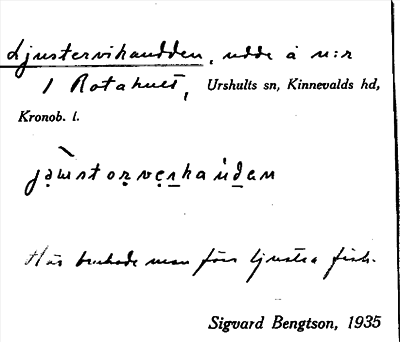 Ljustervikaudden, udde å n:r
1 Rotahult, Urshults sn, Kinnevalds hd,
Kronob. l.
Här brukade man förr ljustra fisk.
Sigvard Bengtson, 1935